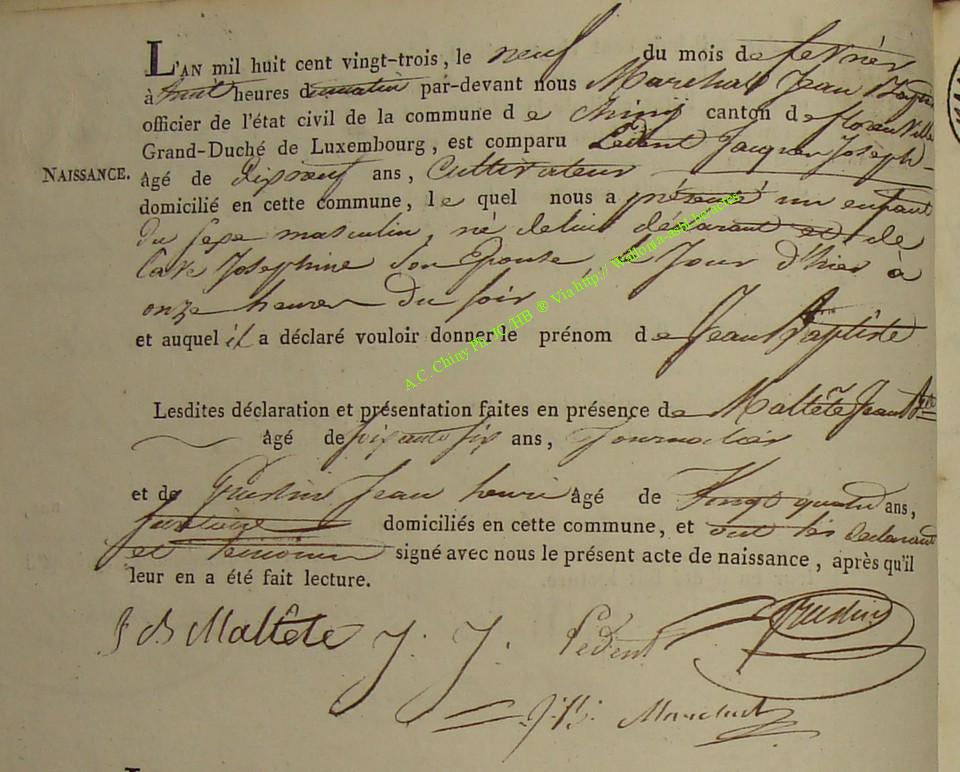 L'AN mil huit cent vingt-trois, le neuf du mois de fevrier
à huit heures du matin par-devant nous Marchal Jean Bapte
officier de l'état civil de la commune de Chiny canton de florenville
Grand-Duché de Luxembourg, est comparu Ledent Jacques Joseph
NAISSANCE.
âgé de dixneuf ans, Cultivateur
domicilié en cette commune, le quel nous a présenté un enfant
du sexe masculin, né de lui déclarant et de
Josephine son Epouse, le Jour d'hier à
onze heures du soir
et auquel il a déclaré vouloir donner le prénom de Jean Baptiste
Lesdites déclaration et présentation faites en présence de Maltête Jean Bte
âgé de soixante six ans, Journalier
et de Jean henri âgé de Vingt quatre ans,
domiciliés en cette commune, et ont les declarant
et temoins signé avec nous le présent acte de naissance, après qu'il
leur en a été fait lecture.
J B Maltête J. J. Ledent
J. B. Marchal
A.C. Chiny Ph JC/HB ® Via http:// Wallonia-asbl.be/actes